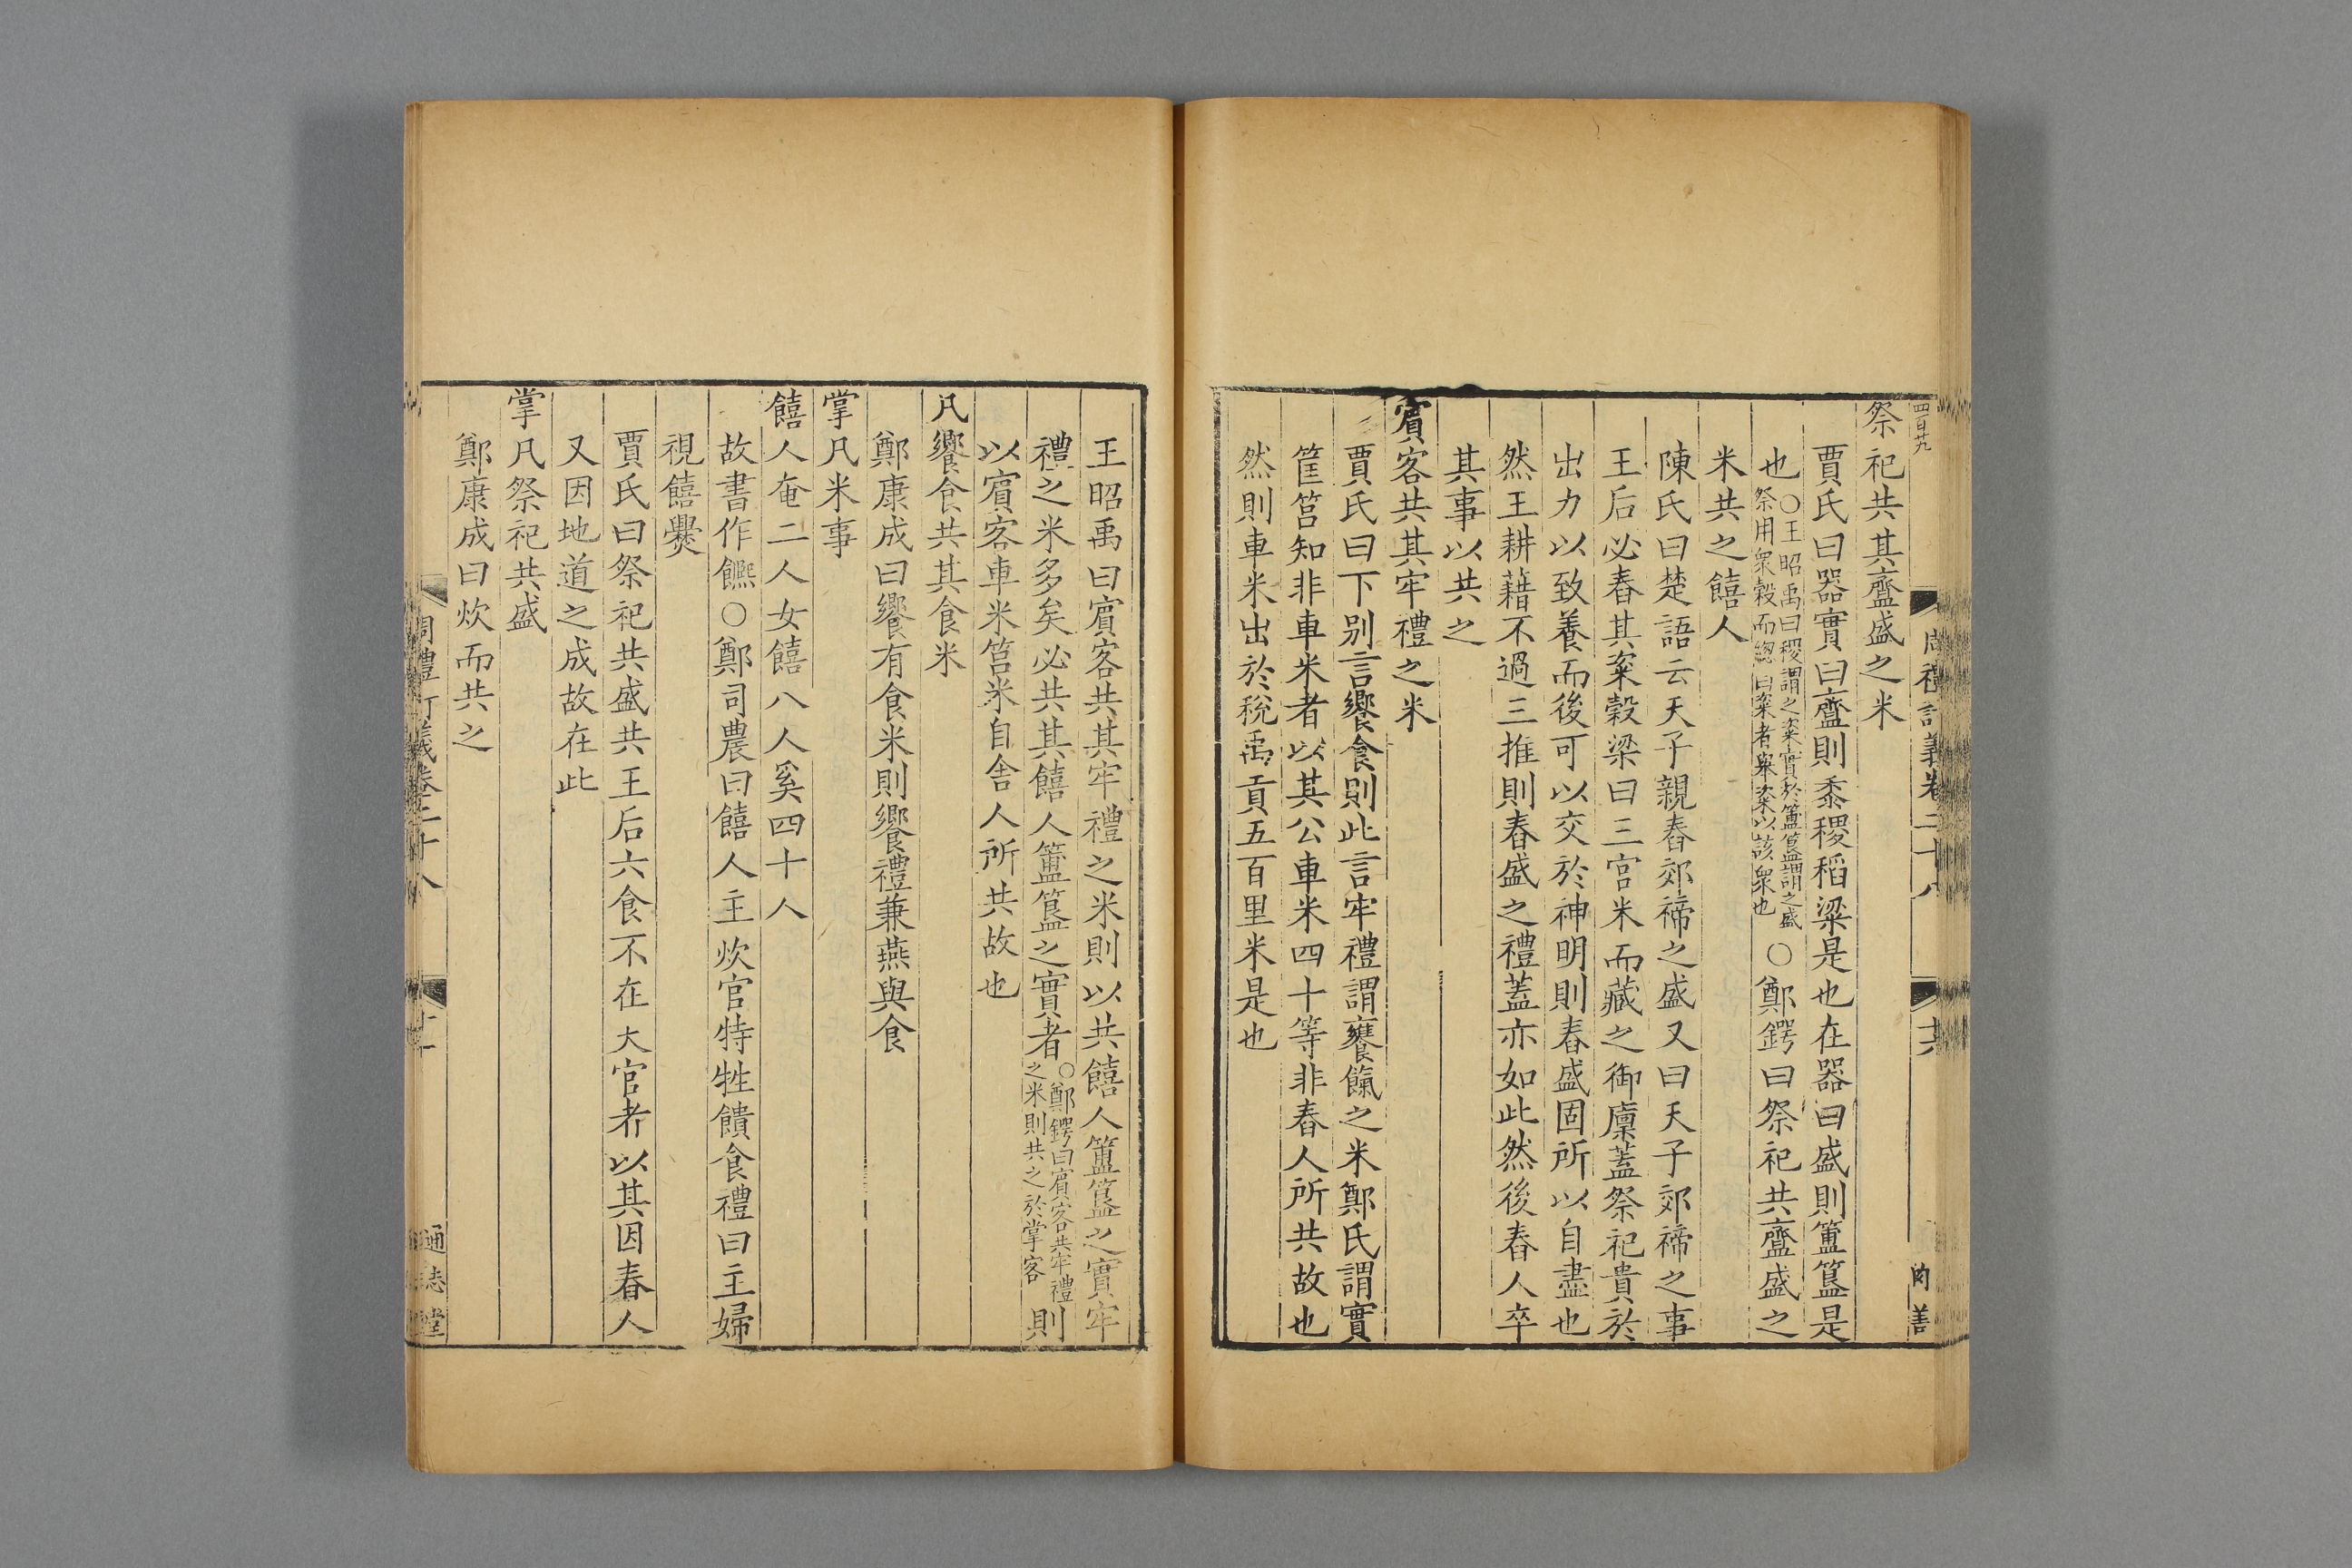 四百廿九
周禮訂義卷二十八
祭祀共其齍盛之米
賈氏曰器實曰齍則黍稷稻粱是也在器曰盛則簠簋是
也○王昭禹曰稷謂之粢實於簠簋謂之盛祭用衆穀而緫曰粢者舉粢以該衆也○鄭鍔曰祭祀共齍盛之
米共之饎人
陳氏曰楚語云天子親舂郊禘之盛又曰天子郊禘之事
王后必舂其粢穀梁曰三宮米而藏之御廩蓋祭祀貴於
出力以致養而後可以交於神明則舂盛固所以自盡也
然王耕藉不過三推則舂盛之禮蓋亦如此然後舂人卒
其事以共之
賔客共其牢禮之米
賈氏曰下别言饗食則此言牢禮謂饔餼之米鄭氏謂實
筐筥知非車米者以其公車米四十等非舂人所共故也
然則車米出於稅禹貢五百里米是也
王昭禹曰賔客共其牢禮之米則以共饎人簠簋之實牢
禮之米多矣必共其饎人簠簋之實者○鄭鍔曰賔客共牢禮之米則共之於掌客則
以賔客車米筥米自舍人所共故也
凡饗食共其食米
鄭康成曰饗有食米則饗禮兼燕與食
掌凡米事
饎人奄二人女饎八人奚四十人
故書作䭒○鄭司農曰饎人主炊官特牲饋食禮曰主婦
視饎爨
賈氏曰祭祀共盛共王后六食不在大官者以其因舂人
又因地道之成故在此
掌凡祭祀共盛
鄭康成曰炊而共之
周禮訂義卷二十八
通志堂